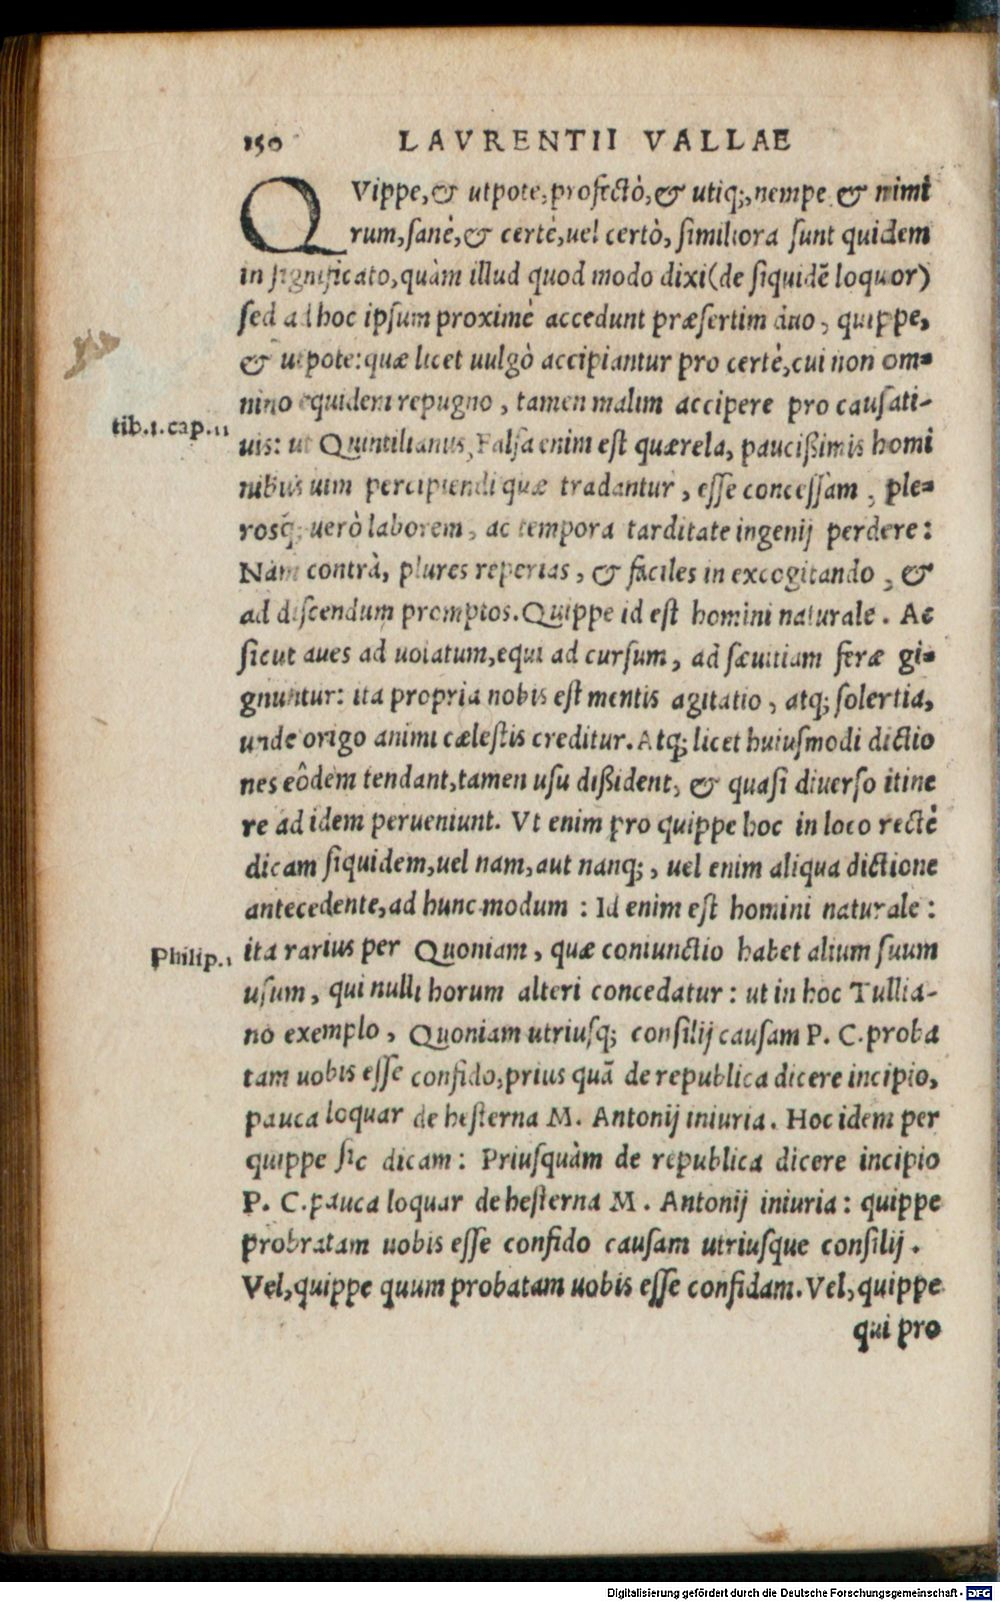 150 LAVRENTII VALLAE
QVippe, & utpote, profectò, & utiq;, nempe & nimi
rum, sanè, & certè, uel certò, similiora sunt quidem
in significato, quàm illud quod modo dixi (de siquidẽ loquor)
sed ad hoc ipsum proximè accedunt præsertim duo, quippe,
& utpote: quæ licet uulgò accipiantur pro certè, cui non om=
nino equidem repugno, tamen malim accipere pro causati-
tib.1.cap.11
uis: ut Quintilianus, Falsa enim est quærela, paucißimis homi
nibus uim percipiendi quæ tradantur, esse concessam, ple=
rosq; uerò laborem, ac tempora tarditate ingenij perdere:
Nam contrà, plures reperias, & faciles in excogitando, &
ad discendum promptos. Quippe id est homini naturale. Ac
sicut aues ad uolatum, equi ad cursum, ad sæuitiam feræ gi=
gnuntur: ita propria nobis est mentis agitatio, atq; solertia,
unde origo animi cælestis creditur. Atq; licet huiusmodi dictio
nes eôdem tendant, tamen usu dißident, & quasi diuerso itine
re ad idem perueniunt. Vt enim pro quippe hoc in loco rectè
dicam siquidem, uel nam, aut nanq;, uel enim aliqua dictione
antecedente, ad hunc modum: Id enim est homini naturale:
Philip.1
ita rarius per Quoniam, quæ coniunctio habet alium suum
usum, qui nulli horum alteri concedatur: ut in hoc Tullia-
no exemplo, Quoniam utriusq; consilij causam P. C. proba
tam uobis esse confido, prius quã de republica dicere incipio,
pauca loquar de hesterna M. Antonij iniuria. Hoc idem per
quippe sic dicam: Priusquàm de republica dicere incipio
P. C. pauca loquar de hesterna M. Antonij iniuria: quippe
probratam uobis esse confido causam utriusque consilij.
Vel, quippe quum probatam uobis esse confidam. Vel, quippe
qui pro
Digitalisierung gefördert durch die Deutsche Forschungsgemeinschaft - DFG